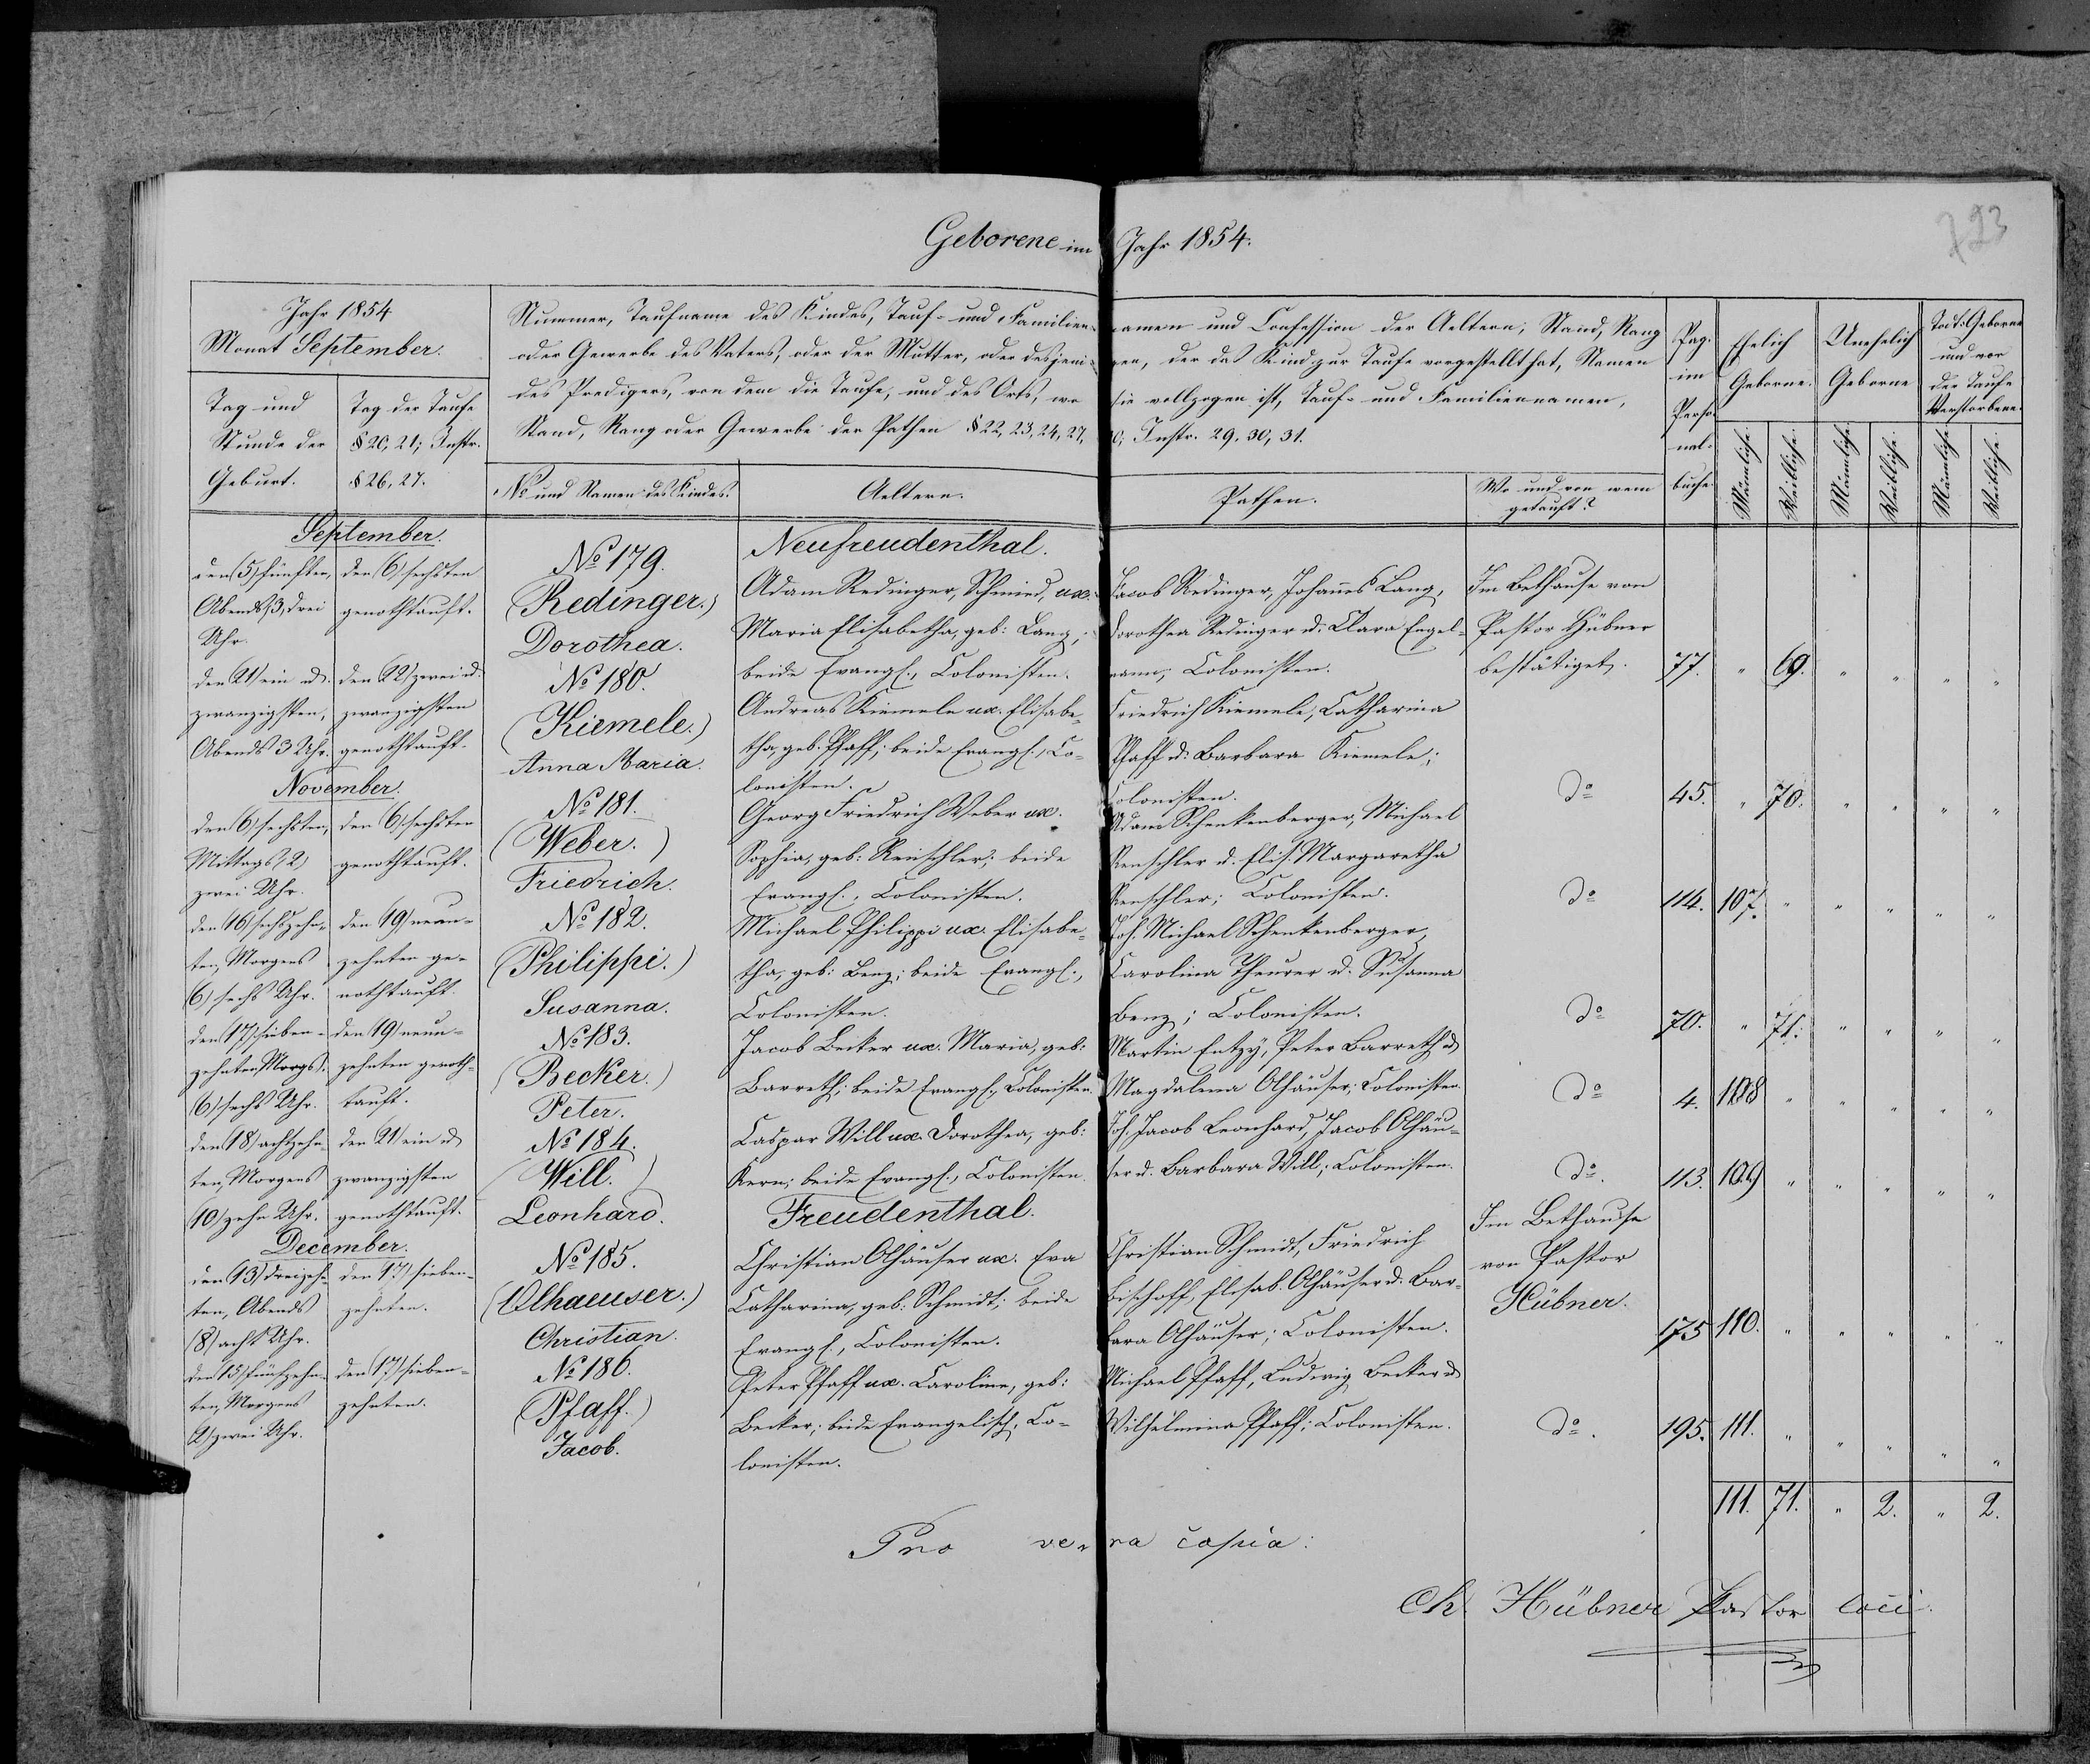 723
Geborene im Jahr 1854.
Jahr 1854
Monat September.
Tag und
Stunde der
Geburt.
Tag der Taufe
§ 20, 21; Instr.
§ 26, 27.
Nummer, Taufname des Kindes, Tauf- und Familiennamen und Confession der Aeltern, Stand, Rang
oder Gewerbe des Vaters, oder der Mutter, oder desjenigen, der das Kind zur Taufe vorgestellt hat, Namen
des Predigers, von dem die Taufe, und des Orts, wo sie vollzogen ist, Tauf- und Familiennamen,
Stand, Rang oder Gewerbe der Pathen § 22, 23, 24, 27, Instr. 29, 30, 31.
No und Namen des Kindes.
Aeltern.
Pathen.
Wo und von wem
getauft?
Pag.
im
Perso-
nal-
buche.
Ehelich
Geborne.
Unehelich
Geborne
Todt-Geborne
und vor
der Taufe
Verstorbene.
Männliche.
Weibliche.
Männliche.
Weibliche.
Männliche.
Weibliche.
September.
Neufreudenthal.
den (5) fünften,
Abends 3, drei
Uhr.
den (6) sechsten
genothtauft.
No 179.
(Redinger.)
Dorothea.
Adam Redinger, Schmied, ux.
Maria Elisabetha, geb: Lang,;
beide Evangl., Colonisten.
Jacob Redinger, Johannes Lang,
Dorothea Redinger u. Clara Engel-
mann, Colonisten.
Im Bethause von
Pastor Hübner
bestätiget.
77. " 69. " " " "
den 21) ein u.
zwanzigsten,
Abends 3 Uhr.
den 22) zwei u.
zwanzigsten
genothtauft.
No 180.
(Kiemele.)
Anna Maria.
Andreas Kiemele ux. Elisabe-
tha, geb. Pfaff; beide Evangl., Co-
lonisten.
Friedrich Kiemele, Catharina
Pfaff u. Barbara Kiemele;
Colonisten.
do 45. " 70. " " " "
November.
den 6) sechsten,
Mittags, 2)
zwei Uhr.
den 6) sechsten
genothtauft.
No 181.
(Weber.)
Friedrich.
Georg Friedrich Weber ux.
Sophia, geb: Renschler; beide
Evangl., Colonisten.
Adam Schenkenberger, Michael
Renschler u. Elis. Margaretha
Renschler; Colonisten.
do 114. 107. " " " " "
den 16) sechszehn-
ten, Morgens
(6) sechs Uhr.
den 19) neun-
zehnten ge-
nothtauft.
No 182.
(Philippi.)
Susanna.
Michael Philippi ux. Elisabe-
tha, geb: Benz; beide Evangl.,
Colonisten.
Joh. Michael Schenkenberger,
Carolina Theurer u. Susanna
Benz; Colonisten.
do 70. " 71. " " " "
den 17) sieben-
zehnten Morgs.
(6) sechs Uhr.
den 19) neun-
zehnten genoth-
tauft.
No 183.
(Becker.)
Peter.
Jacob Becker ux. Maria, geb:
Barreth; beide Evangl., Colonisten.
Martin Entzy, Peter Barreth u
Magdalena Olhäuser; Colonisten.
do 4. 108 " " " " "
den 18) achtzehn-
ten, Morgens
(10) zehn Uhr.
den 21) ein u
zwanzigsten
genothtauft.
No 184.
(Will.)
Leonhard.
Caspar Will ux. Dorothea, geb:
Kern; beide Evangl., Colonisten.
Joh. Jacob Leonhard, Jacob Olhäu-
ser u. Barbara Will; Colonisten.
do. 113. 109 " " " " "
December.
Freudenthal.
den 13) dreizehn-
ten, Abends
(8) acht Uhr.
den 17) sieben-
zehnten.
No 185.
(Olhaeuser.)
Christian.
Christian Olhäuser ux. Eva
Catharina, geb: Schmidt; beide
Evangl., Colonisten.
Christian Schmidt, Friedrich
Bischoff, Elisab. Olhäuser u. Bar-
bara Olhäuser; Colonisten.
Im Bethause
von Pastor
Hübner.
175 110. " " " " "
den 15) fünfzehn-
ten, Morgens
2) zwei Uhr.
den 17) sieben-
zehnten.
No 186.
(Pfaff.)
Jacob.
Peter Pfaff ux. Caroline, geb:
Becker; beide Evangelisch; Co-
lonisten.
Michael Pfaff, Ludwig Becker u
Wilhelmina Pfaff; Colonisten.
do. 195. 111. " " " " "
111. 71. " 2. " 2.
Pro vera copia:
Ch. Hübner Pastor loci.